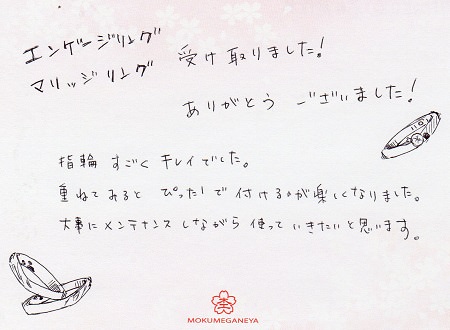 エンゲージリング
マリッジリング 受け取りました!
ありがとう ございました!
指輪 すごく キレイでした。
重ねてみると ぴったしで 付けるのが楽しくなりました。
大事にメンテナンス しながら 使って いきたいと思います。
MOKUMEGANEYA